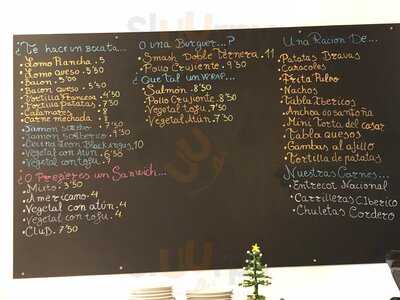 ¿Te hace un Bocata...
• Lomo Plancha . 5
• Lomo queso . 5'50
• Bacon . 5
• Bacon queso . 5'50
• Tortilla Francesa . 4'50
• Tortilla patatas . 7'50
• Calamares . 8
• Carne mechada . 7
• Jamon
• Jamon S.Ibérico . 9'50
• Black Angus . 10
• Vegetal con Atún .
• Vegetal con tofu .
¿O Prefieres un Sandwich...
• Mixto . 3'50
• Americano . 4
• Vegetal con atún . 4
• Vegetal con tofu . 4
• Club . 7'50
O una Burguer...?
• Smash Doble Ternera . 11
• Pollo Crujiente . 9'50
¿Que tal un wrap...
• Salmón . 8'50
• Pollo Crujiente . 8'50
• Vegetal tofu . 7'50
• Vegetal Atún . 7'50
Una Racion De...
• Patatas Bravas
• Caracoles
• Frita Pulpo
• Nachos
• Tabla Ibericos
• Anchoa santoña
• Mini Torta del casar
• Tabla quesos
• Gambas al ajillo
• Tortilla de patatas
Nuestras Carnes...
• Entrecot Nacional
• Carrilleras Ciberico
• Chuletas Cordero